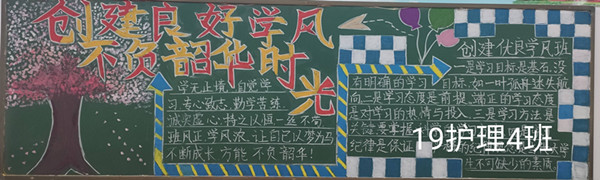 创建良好学风
不负韶华时光
学无止境,自觉学
习,专心致志,勤学苦练,
诚实虚心,持之以恒一丝不苟
班风正学风浓,让自己以梦为马
不断成长 方能 不负韶华!
创建优良学风班
一是学习目标是基石,没
有明确的学习目标,如一叶孤舟迷失航
向二是学习态度是前提,端正的学习态度
是对学习的热情与投入。三是学习方法是
关键要掌握
纪律是保证
生不可缺少的素质
19护理4班